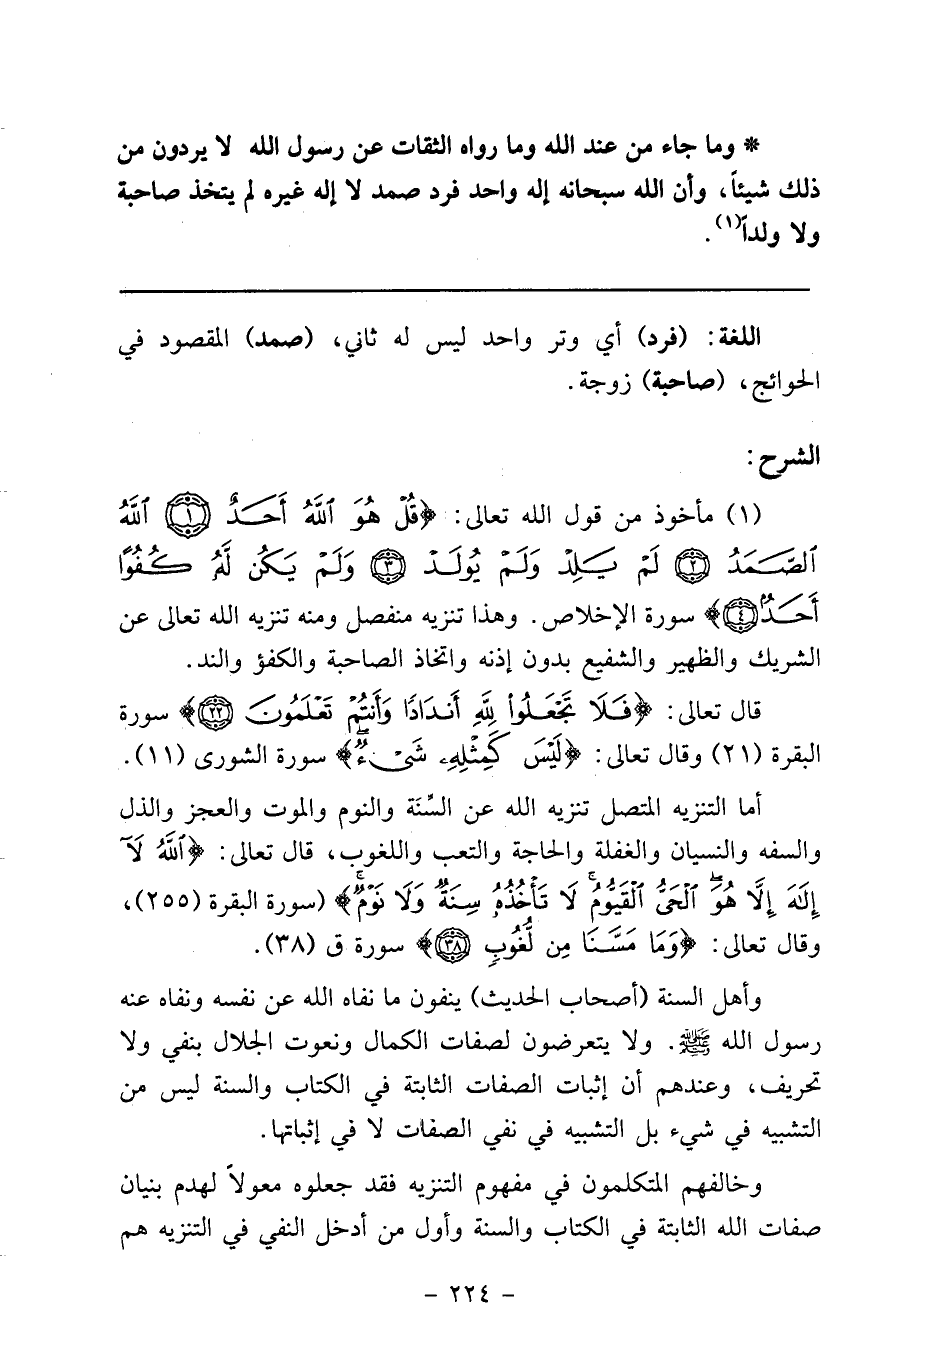 * وما جاء من عند الله وما رواه الثقات عن رسول الله لا يردون من
ذلك شيئاً، وأن الله سبحانه إله واحد فرد صمد لا إله غيره لم يتخذ صاحبة
ولا ولداً(١).
اللغة: (فرد) أي وتر واحد ليس له ثاني، (صمد) المقصود في
الحوائج، (صاحبة) زوجة.
الشرح:
(١) مأخوذ من قول الله تعالى: ﴿قُلْ هُوَ ٱللَّهُ أَحَدٌ ١ ٱللَّهُ
ٱلصَّمَدُ ٢ لَمْ يَلِدْ وَلَمْ يُولَدْ ٣ وَلَمْ يَكُن لَّهُ كُفُوًا
أَحَدٌ ٤﴾ سورة الإخلاص. وهذا تنزيه منفصل ومنه تنزيه الله تعالى عن
الشريك والظهير والشفيع بدون إذنه واتخاذ الصاحبة والكفؤ والند.
قال تعالى: ﴿فَلَا تَجْعَلُوا۟ لِلَّهِ أَندَادًا وَأَنتُمْ تَعْلَمُونَ ٢٢﴾ سورة
البقرة (٢١) وقال تعالى: ﴿لَيْسَ كَمِثْلِهِۦ شَىْءٌ﴾ سورة الشورى (١١).
أما التنزيه المتصل تنزيه الله عن السِّنَة والنوم والموت والعجز والذل
والسفه والنسيان والغفلة والحاجة والتعب واللغوب، قال تعالى: ﴿ٱللَّهُ لَآ
إِلَٰهَ إِلَّا هُوَ ٱلْحَىُّ ٱلْقَيُّومُ لَا تَأْخُذُهُۥ سِنَةٌ وَلَا نَوْمٌ﴾ (سورة البقرة (٢٥٥)،
وقال تعالى: ﴿وَمَا مَسَّنَا مِن لُّغُوبٍ ٣٨﴾ سورة ق (٣٨).
وأهل السنة (أصحاب الحديث) ينفون ما نفاه الله عن نفسه ونفاه عنه
رسول الله ﷺ. ولا يتعرضون لصفات الكمال ونعوت الجلال بنفي ولا
تحريف، وعندهم أن إثبات الصفات الثابتة في الكتاب والسنة ليس من
التشبيه في شيء بل التشبيه في نفي الصفات لا في إثباتها.
وخالفهم المتكلمون في مفهوم التنزيه فقد جعلوه معولاً لهدم بنيان
صفات الله الثابتة في الكتاب والسنة وأول من أدخل النفي في التنزيه هم
- ٢٢٤ -